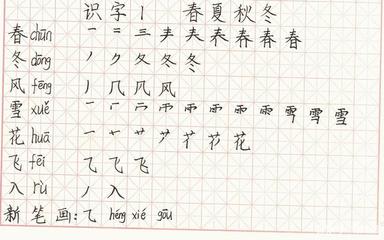 识字1 春夏秋冬
春 chūn 一 二 三 𡗗 夫 表 春 春 春
冬 dōng 丿 ク 夂 冬 冬
风 fēng 丿 几 几 风
雪 xuě 一 雨 雨 雪 雪 雪
花 huā 一 十 艹 花 花
飞 fēi 乁 飞 飞
入 rù 丿 入
新笔画:乁 héng xié gōu